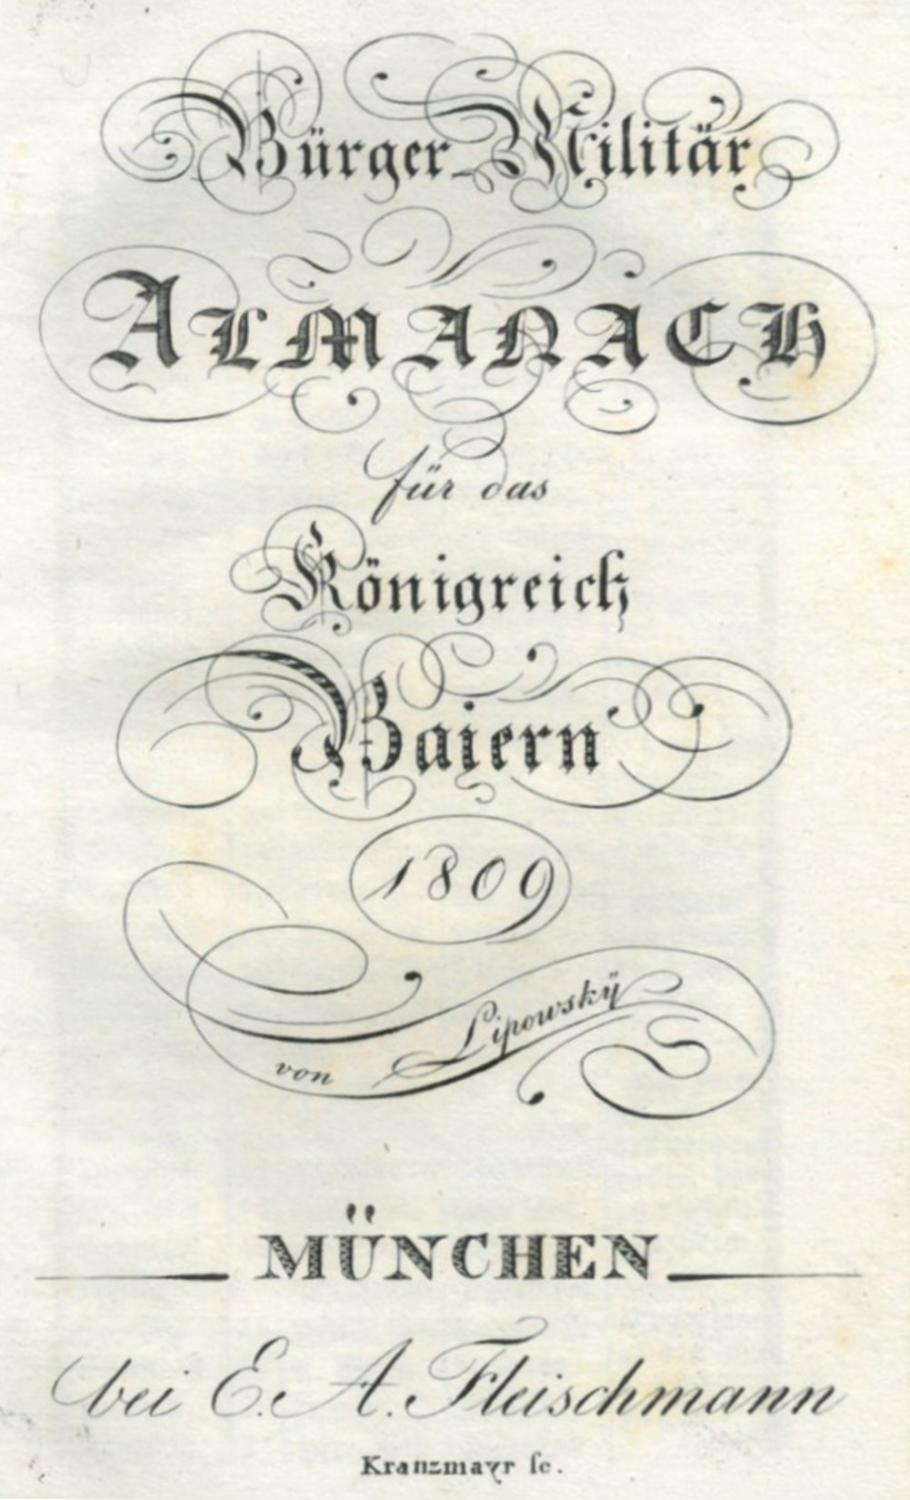 Bürger-Militär
ALMANACH
für das
Königreich
Baiern
1809
von Lipowskÿ
MÜNCHEN
bei E. A. Fleischmann
Kranzmayr ſc.